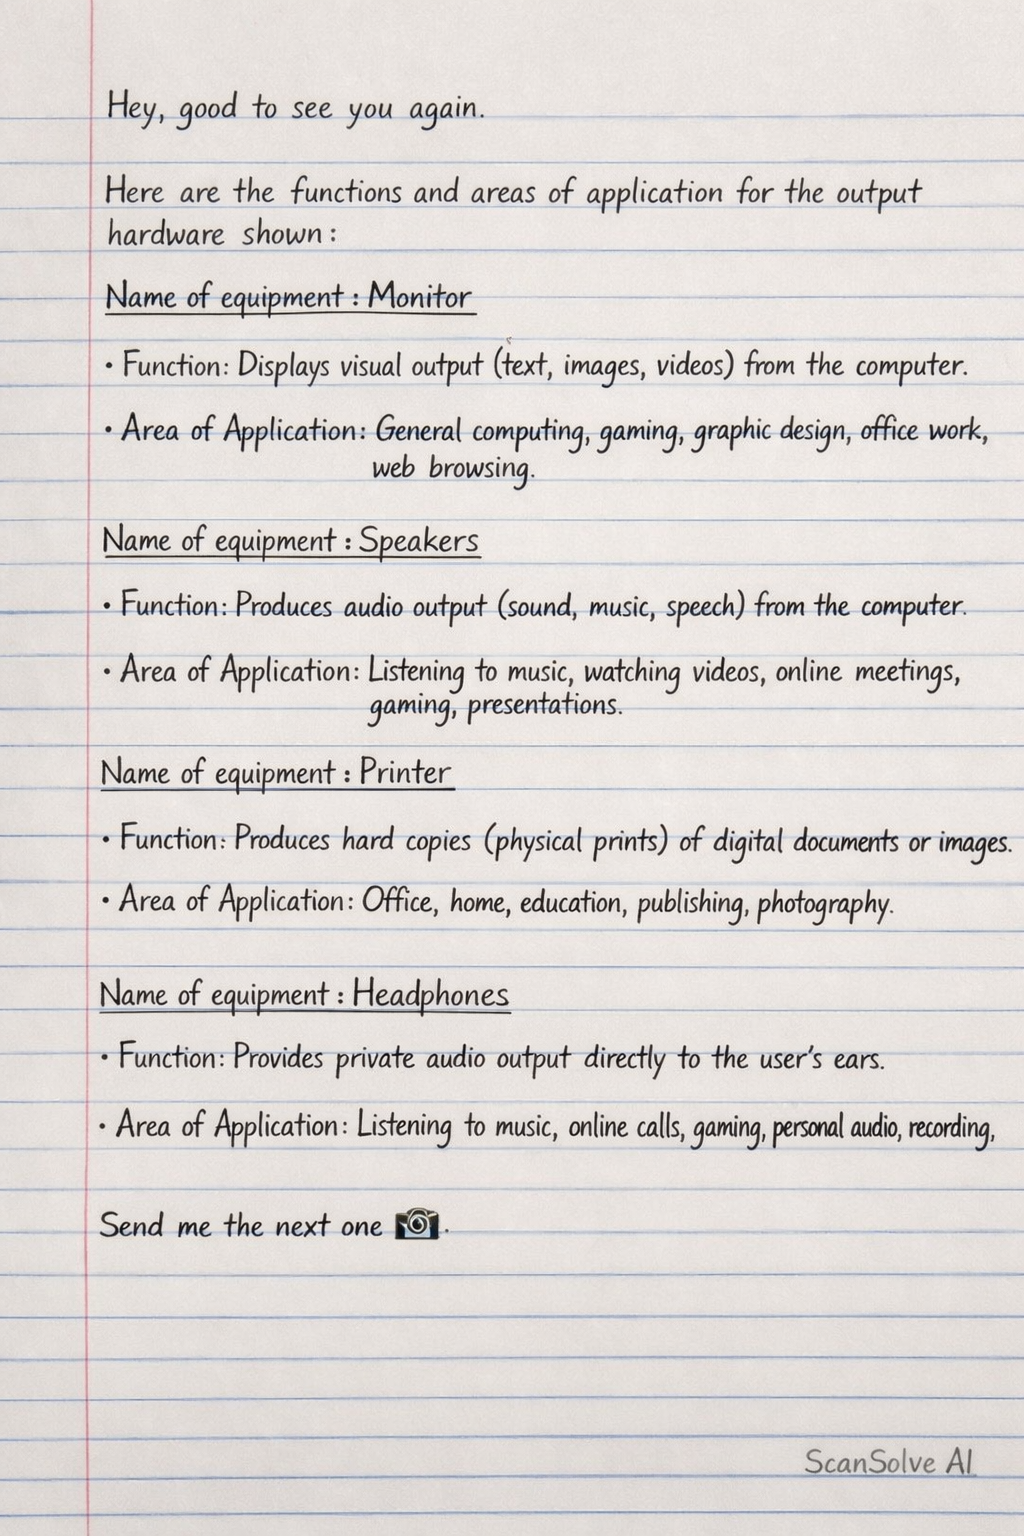 Hey, good to see you again.
Here are the functions and areas of application for the output
hardware shown:
Name of equipment : Monitor
• Function: Displays visual output (text, images, videos) from the computer.
• Area of Application: General computing, gaming, graphic design, office work,
web browsing.
Name of equipment : Speakers
• Function: Produces audio output (sound, music, speech) from the computer.
• Area of Application: Listening to music, watching videos, online meetings,
gaming, presentations.
Name of equipment : Printer
• Function: Produces hard copies (physical prints) of digital documents or images.
• Area of Application: Office, home, education, publishing, photography.
Name of equipment : Headphones
• Function: Provides private audio output directly to the user's ears.
• Area of Application: Listening to music, online calls, gaming, personal audio, recording,
Send me the next one 📷.
ScanSolve AI